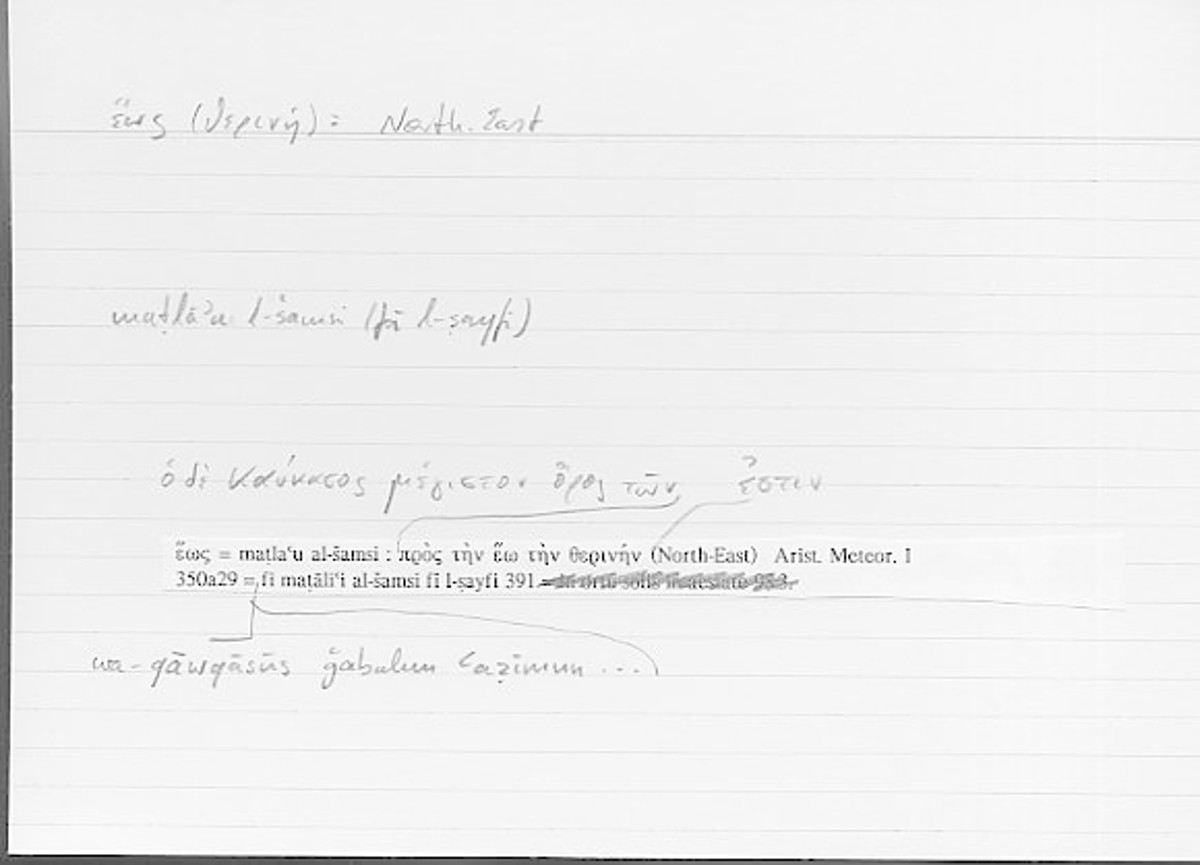 ἕως (θερινή) = North-East
maṭlaʾu l-šamsi (fī l-ṣayfi)
ὁ δὲ Καύκασος μέγιστον ὄρος τῶν ἐστιν
ἕως = maṭlaʿu al-šamsi : πρὸς τὴν ἕω τὴν θερινήν (North-East) Arist. Meteor. I
350a29 = fī maṭāliʿi al-šamsi fī l-ṣayfi 391
wa-qāwqāsūs ǧabalun ʿaẓīmun ...